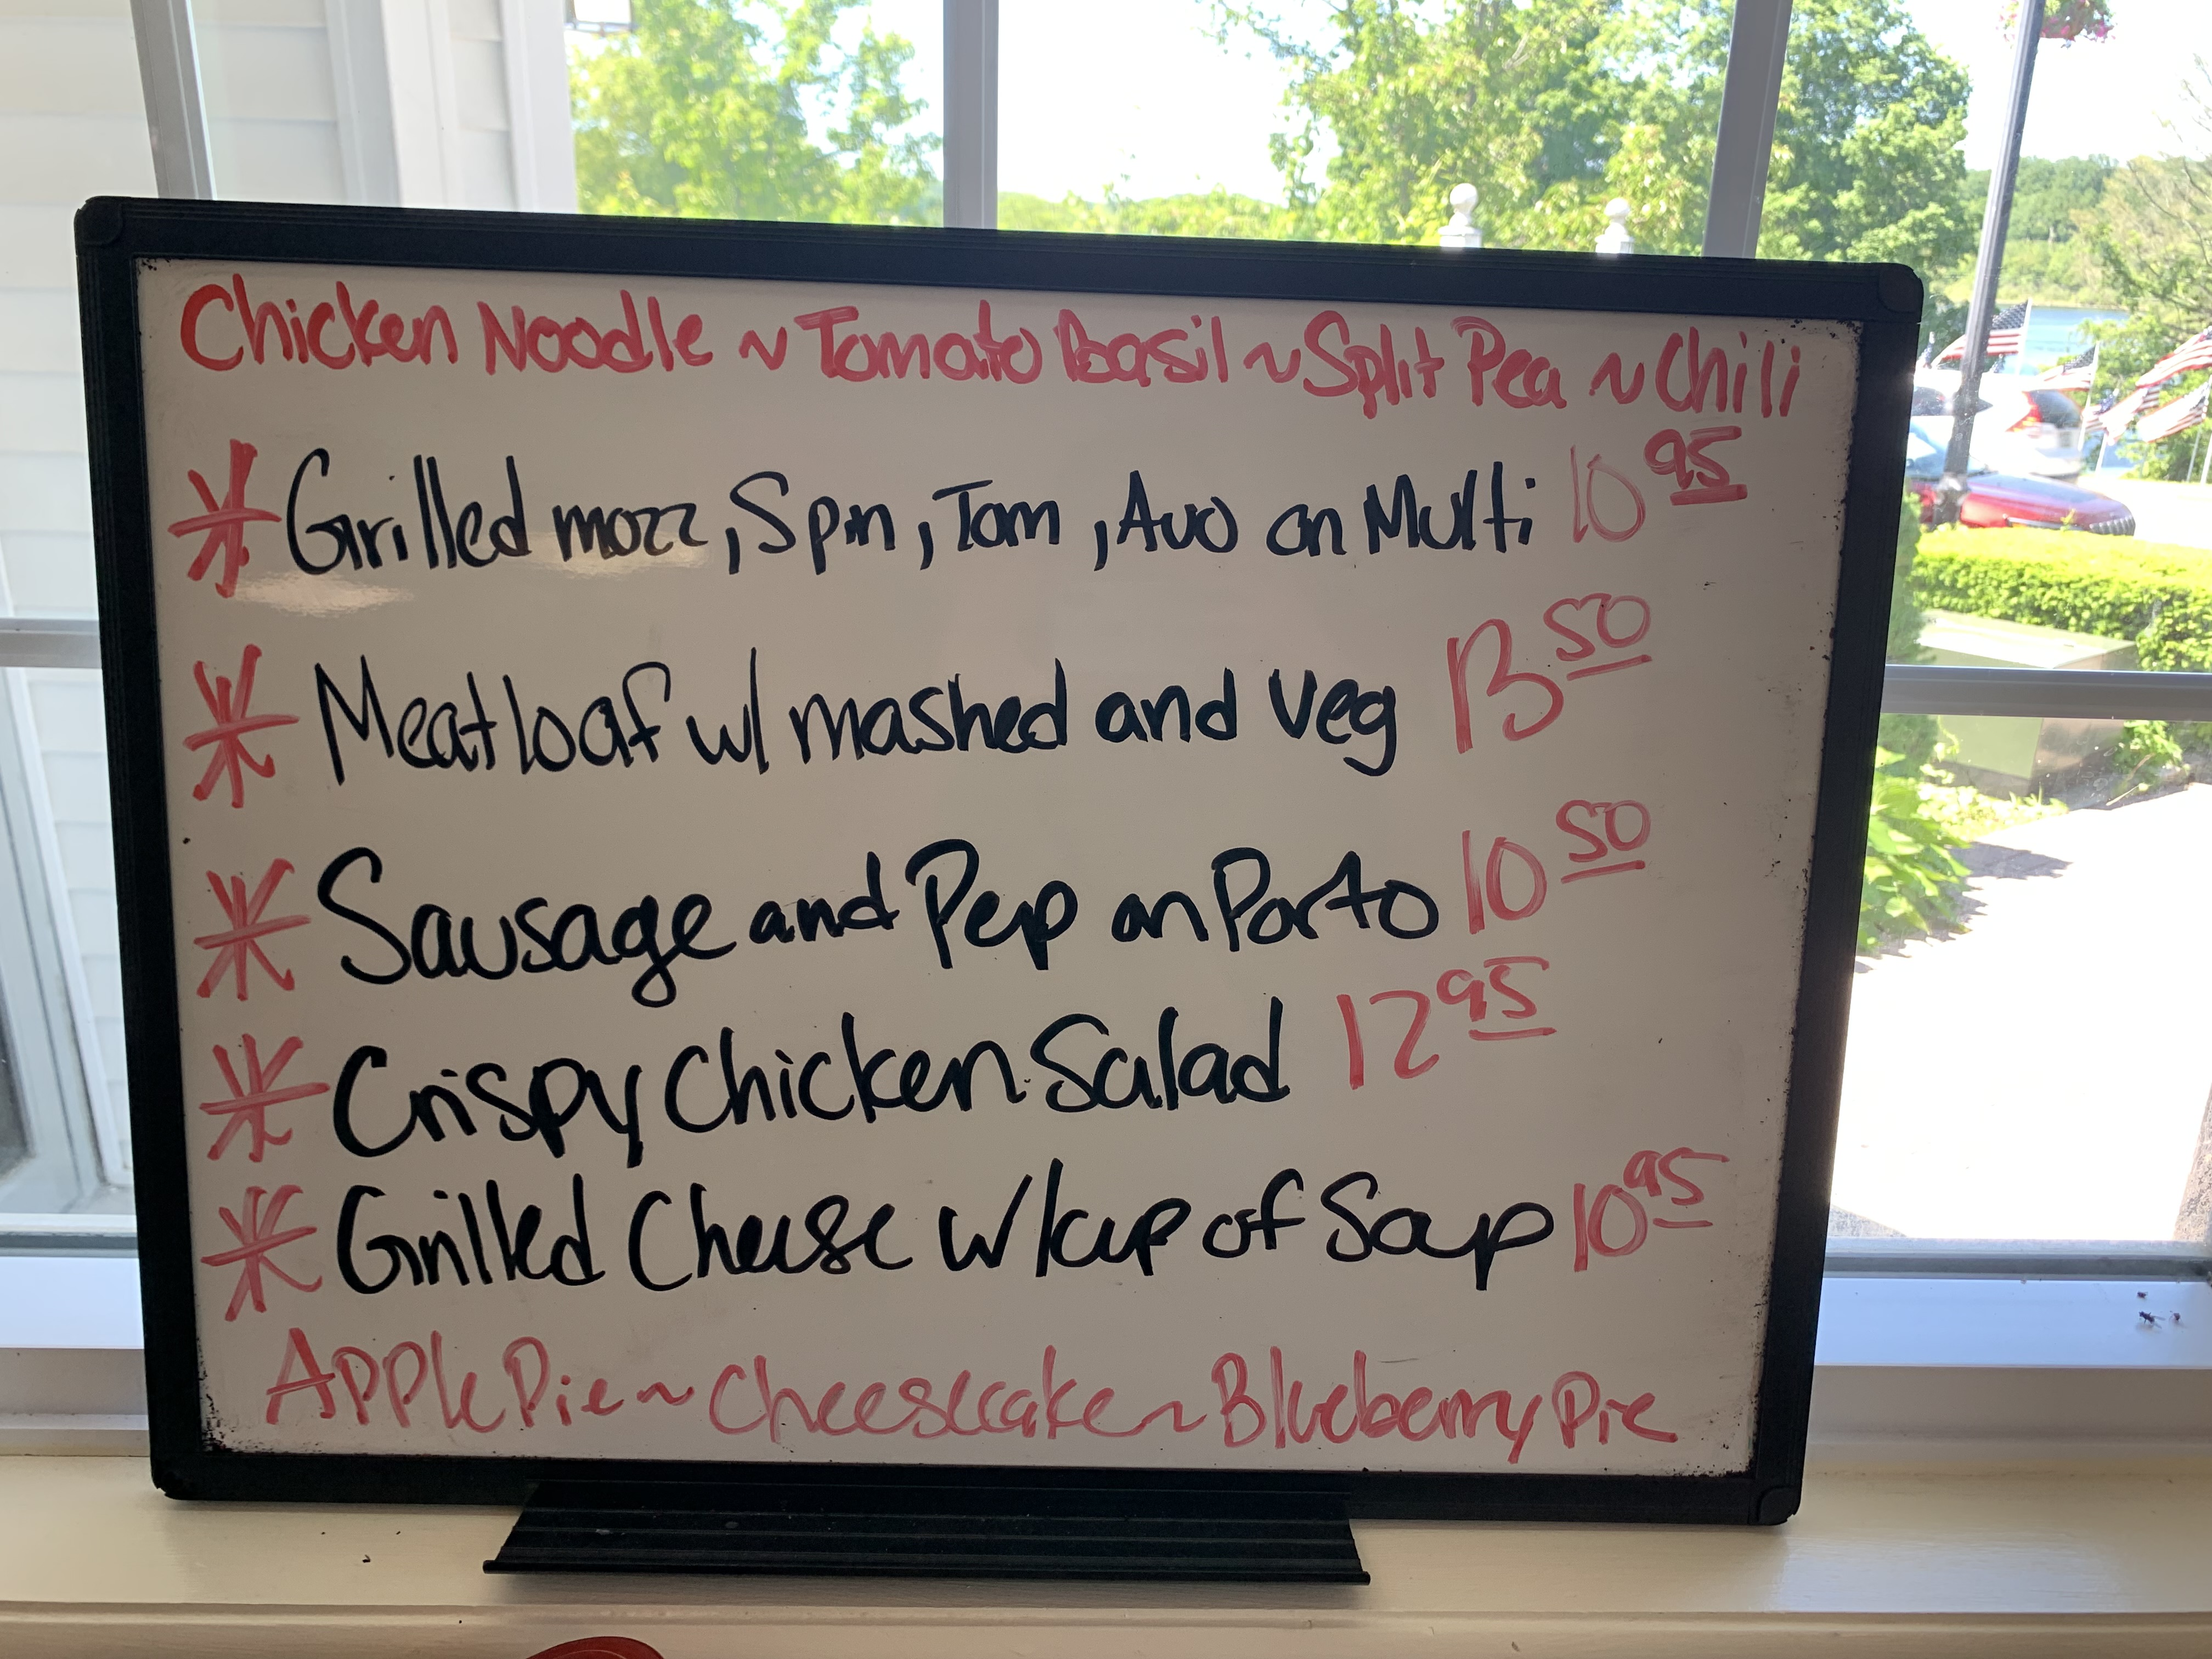 Chicken Noodle ~ Tomato Basil ~ Split Pea ~ Chili
* Grilled mozz, Spin, Tom, Avo on Multi 10 95
* Meatloaf w/ mashed and Veg 13 50
* Sausage and Pep on Porto 10 50
* Crispy Chicken Salad 12 95
* Grilled Cheese w/ cup of Soup 10 95
Apple Pie ~ Cheesecake ~ Blueberry Pie